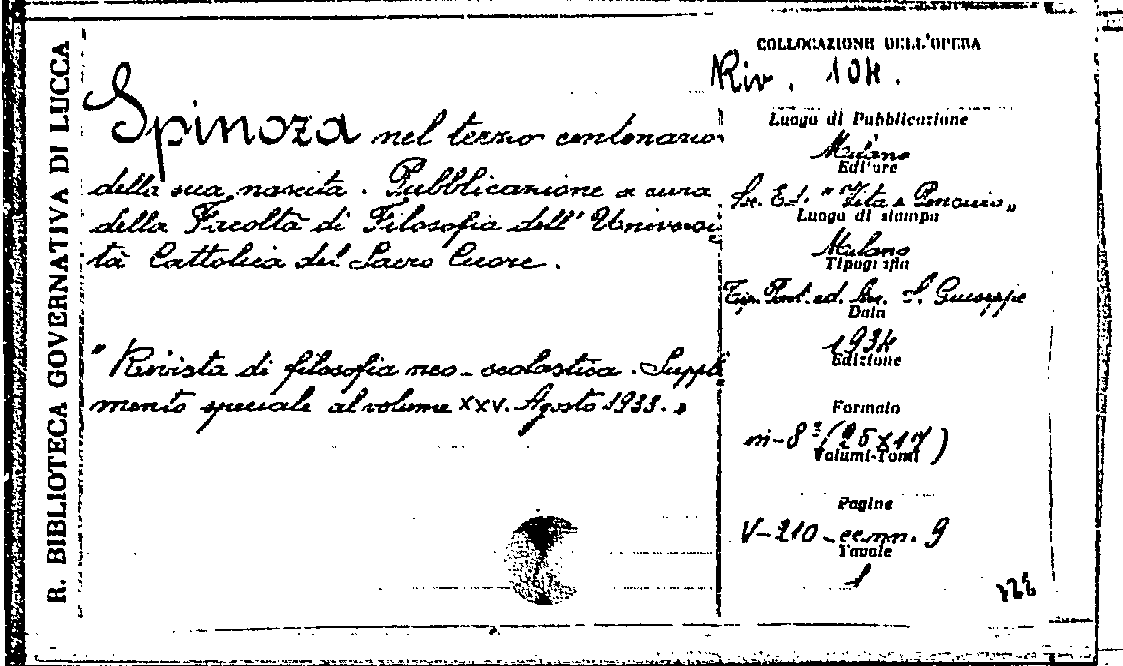 R. BIBLIOTECA GOVERNATIVA DI LUCCA
Spinoza nel terzo centenario
della sua nascita. Pubblicazione a cura
della Facoltà di Filosofia dell'Universi
tà Cattolica del Sacro Cuore.
"Rivista di filosofia neo-scolastica. Suppli
mento speciale al volume XXV. Agosto 1933."
COLLOCAZIONE DELL'OPERA
Riv. 104.
Luogo di Pubblicazione
Milano
Editore
Soc. Ed. "Vita e Pensiero"
Luogo di stampa
Milano
Tipografia
Tip. Pont. ed. S. Giuseppe
Data
1934
Edizione
Formato
in-8° (25x17)
Volumi-Tomi
Pagine
V-210-cc.nn. 9
Tavole
1